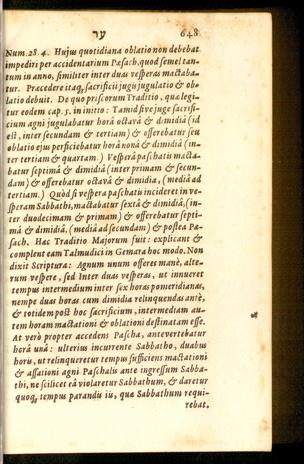 ער
648
Num. 28. 4. Hujus quotidiana oblatio non debebat
impediri per accidentarium Pasach, quod semel tan-
tum in anno, similiter inter duas vesperas mactaba-
tur. Præcedere itaq, sacrificii jugis jugulatio & ob-
latio debuit. De quo priscorum Traditio, quæ legi-
tur eodem cap. 5. in initio: Tamid sive juge sacrifi-
cium agni jugulabatur horâ octavâ & dimidiâ (id
est, inter secundam & tertiam) & offerebatur seu
oblatio ejus perficiebatur horâ nonâ & dimidiâ (in-
ter tertiam & quartam.) Vesperâ paschatis macta-
batur septimâ & dimidiâ (inter primam & secun-
dam) & offerebatur octavâ & dimidia, (media ad
tertiam.) Quòd si vespera paschatis incideret in ve-
speram Sabbathi, mactabatur sextâ & dimidiâ, (in-
ter duodecimam & primam) & offerebatur septi-
mâ & dimidiâ, (media ad secundam) & postea Pa-
sach. Hac Traditio Majorum fuit: explicant &
complent eam Talmudici in Gemara hoc modo. Non
dixit Scriptura: Agnum unum offeres manè, alte-
rum vespere, sed Inter duas vesperas, ut innueret
tempus intermedium inter sex horas pomeridianas,
nempe duas horas cum dimidia relinquendas antè,
& totidem post hoc sacrificium, intermediam au-
tem horam mactationi & oblationi destinatam esse.
At verò propter accedens Pascha, antevertebatur
horâ unâ: ulterius incurrente Sabbatho, duabus
horis, ut relinqueretur tempus sufficiens mactationi
& assationi agni Paschalis ante ingressum Sabba-
thi, ne scilicet eâ violaretur Sabbathum, & daretur
quoq, tempus parandis iis, quæ Sabbathum requi-
rebat.